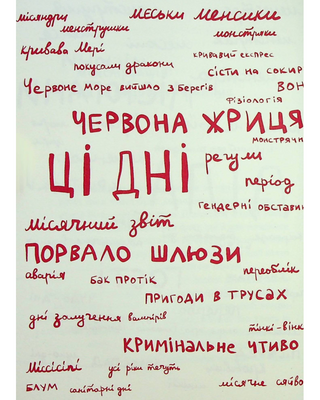 місяндри МЕСЬКИ МЕНСИКИ
менструшки монстряки
кривава Мері кривавий експрес
покусали дракони СІСТИ НА СОКИР
Червоне море вийшло з берегів ВОН
ФІЗІОЛОГІЯ
ЧЕРВОНА ЖРИЦЯ
МОНСТРЯЧИ
ЦІ ДНІ регули
період
ГЕНДЕРНІ ОБСТАВИН
місячний звіт
ПОРВАЛО ШЛЮЗИ
аварія БАК ПРОТІК переоблік
ПРИГОДИ В ТРУСАХ
дні залучення вампірів
тінкі-вінк
КРИМІНАЛЬНЕ ЧТИВО
Міссісіпі усі ріки течуть
БЛУМ санітарні дні місячне сяйво